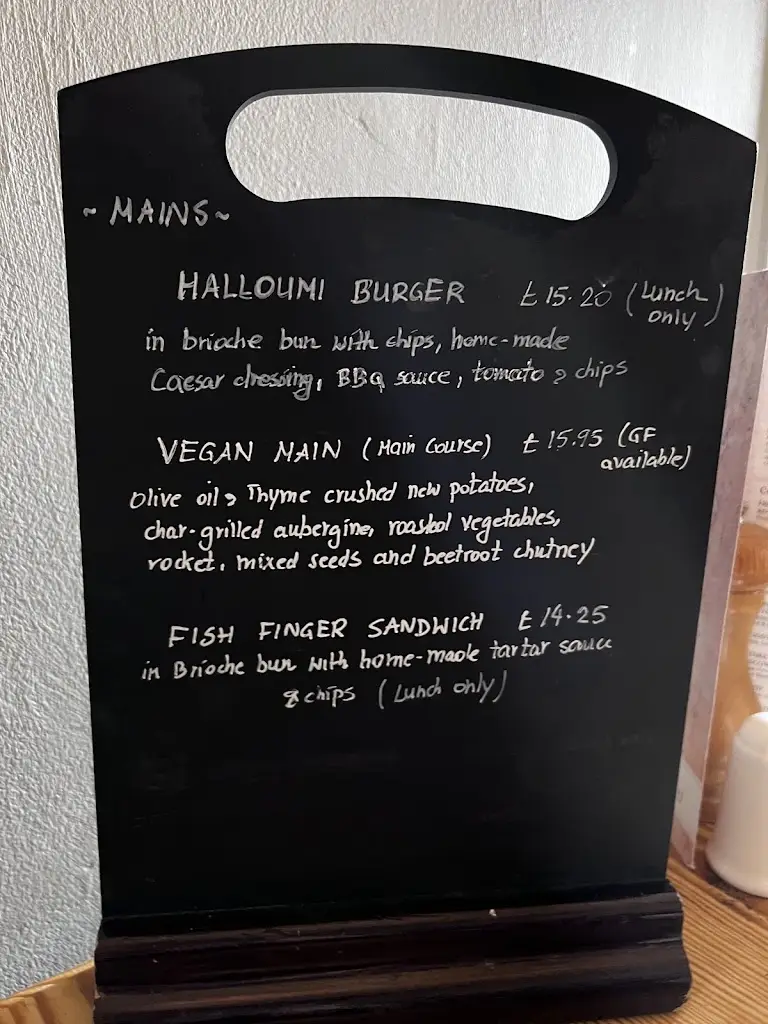 ~ MAINS ~
HALLOUMI BURGER £15.20 (Lunch only)
in brioche bun with chips, home-made
Caesar dressing, BBQ sauce, tomato & chips
VEGAN MAIN (Main Course) £15.95 (GF available)
Olive oil & Thyme crushed new potatoes,
char-grilled aubergine, roasted vegetables,
rocket, mixed seeds and beetroot chutney
FISH FINGER SANDWICH £14.25
in Brioche bun with home-made tartar sauce
& chips (Lunch only)